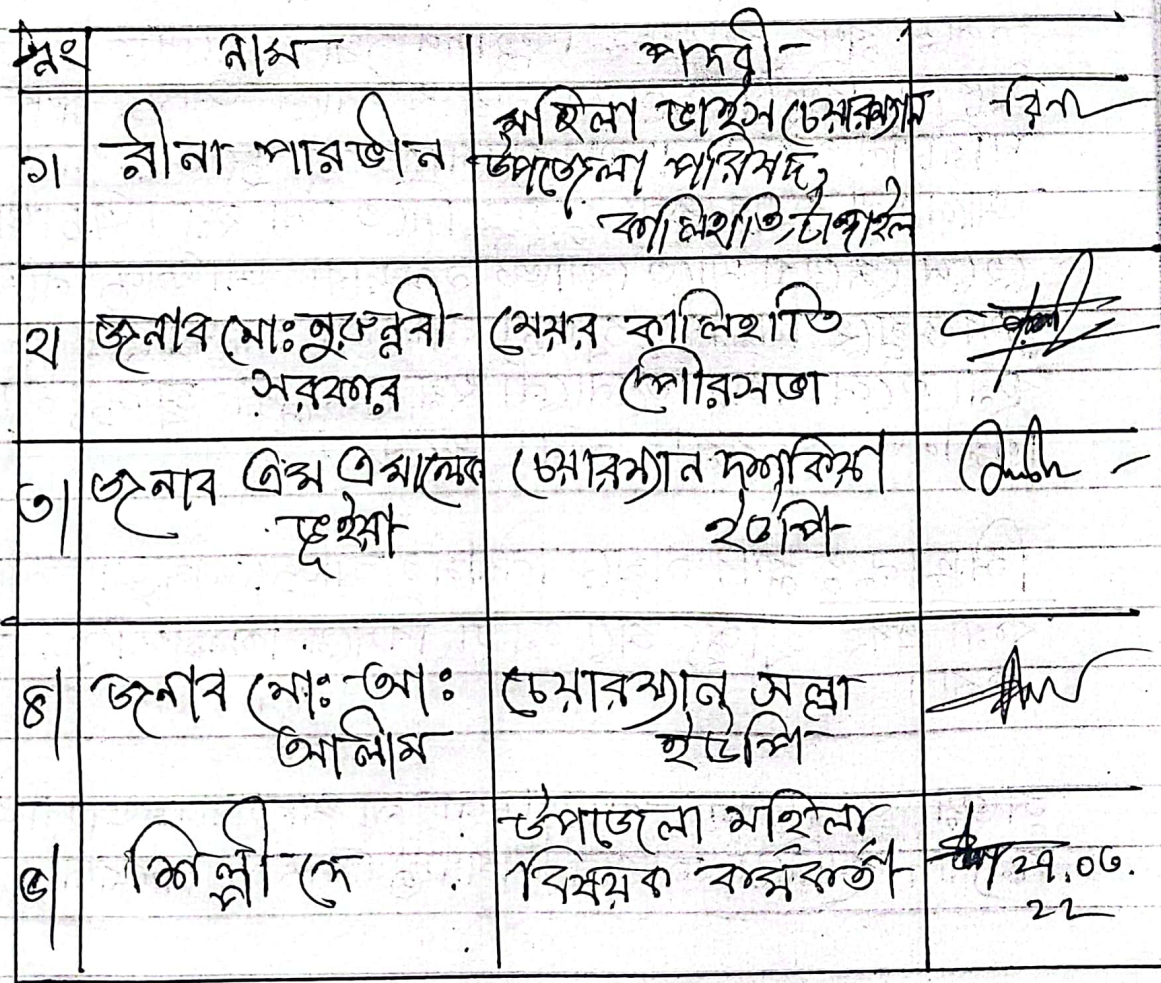 ক্রনং নাম পদবী
১। রীনা পারভীন মহিলা ভাইস চেয়ারম্যান রিনা
উপজেলা পরিষদ,
কালিহাতি, টাঙ্গাইল
২। জনাব মোঃ নুরুন্নবী মেয়র কালিহাতি
সরকার পৌরসভা
৩। জনাব এম এ মালেক চেয়ারম্যান দশকিয়া
ভূইয়া ইউপি
৪। জনাব মোঃ আঃ চেয়ারম্যান সল্লা
আলীম ইউপি
৫। শিল্পী দে উপজেলা মহিলা
বিষয়ক কর্মকর্তা ২৭.০৩.
২২